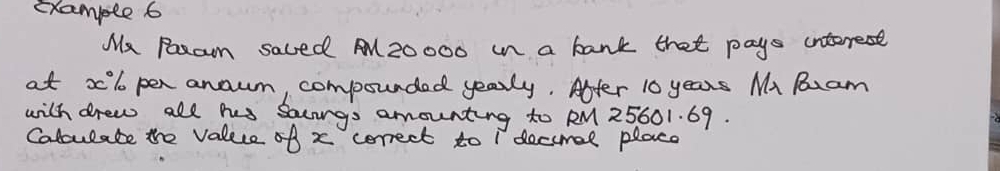 Example 6
Mr Param saved RM 20 000 in a bank that pays interest
at x% per annum, compounded yearly. After 10 years Mr Param
with drew all his savings amounting to RM 25601.69.
Calculate the value of x correct to 1 decimal place